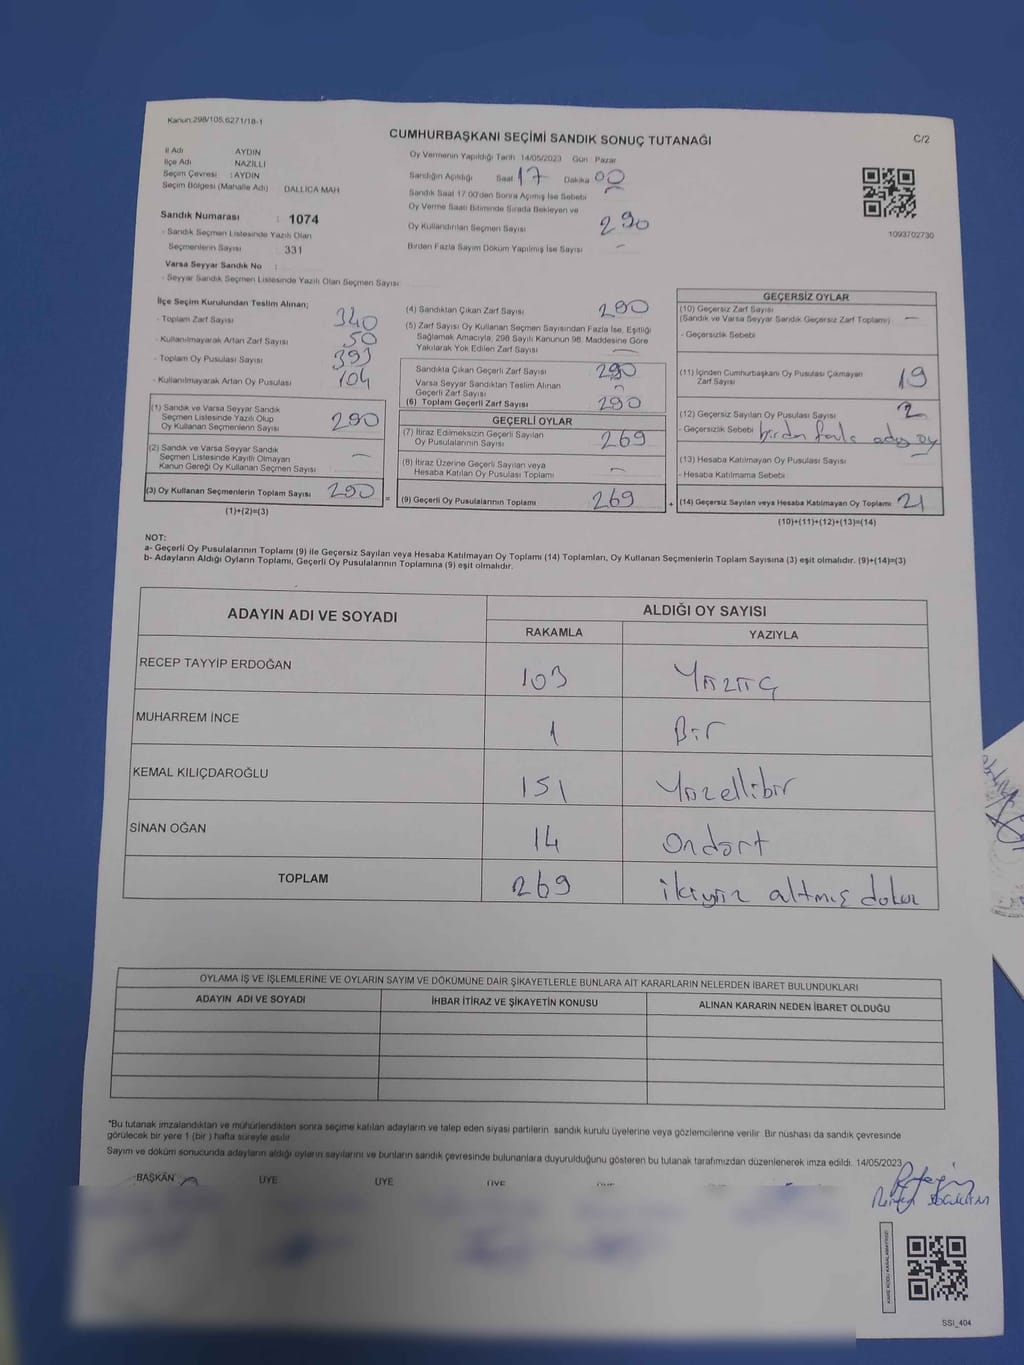 Kanun:298/105,6271/18-1
CUMHURBAŞKANI SEÇİMİ SANDIK SONUÇ TUTANAĞI
C/2
İl Adı AYDIN
İlçe Adı NAZİLLİ
Seçim Çevresi : AYDIN
Seçim Bölgesi (Mahalle Adı) DALLICA MAH
Sandık Numarası : 1074
- Sandık Seçmen Listesinde Yazılı Olan
Seçmenlerin Sayısı : 331
Varsa Seyyar Sandık No :
- Seyyar Sandık Seçmen Listesinde Yazılı Olan Seçmen Sayısı:
Oy Vermenin Yapıldığı Tarih 14/05/2023 Gün Pazar
Sandığın Açıldığı Saat 17 Dakika 00
Sandık Saat 17:00'den Sonra Açılmış İse Sebebi
Oy Verme Saati Bitiminde Sırada Bekleyen ve
Oy Kullandırılan Seçmen Sayısı 290
Birden Fazla Sayım Döküm Yapılmış İse Sayısı —
1093702730
İlçe Seçim Kurulundan Teslim Alınan;
- Toplam Zarf Sayısı 340
- Kullanılmayarak Artan Zarf Sayısı 50
- Toplam Oy Pusulası Sayısı 393
- Kullanılmayarak Artan Oy Pusulası 104
(1) Sandık ve Varsa Seyyar Sandık
Seçmen Listesinde Yazılı Olup
Oy Kullanan Seçmenlerin Sayısı 290
(2) Sandık ve Varsa Seyyar Sandık
Seçmen Listesinde Kayıtlı Olmayan
Kanun Gereği Oy Kullanan Seçmen Sayısı —
(3) Oy Kullanan Seçmenlerin Toplam Sayısı 290 =
(1)+(2)=(3)
(4) Sandıktan Çıkan Zarf Sayısı 290
(5) Zarf Sayısı Oy Kullanan Seçmen Sayısından Fazla İse, Eşitliği
Sağlamak Amacıyla, 298 Sayılı Kanunun 98. Maddesine Göre
Yakılarak Yok Edilen Zarf Sayısı —
Sandıkta Çıkan Geçerli Zarf Sayısı 290
Varsa Seyyar Sandıktan Teslim Alınan
Geçerli Zarf Sayısı —
(6) Toplam Geçerli Zarf Sayısı 290
GEÇERLİ OYLAR
(7) İtiraz Edilmeksizin Geçerli Sayılan
Oy Pusulalarının Sayısı 269
(8) İtiraz Üzerine Geçerli Sayılan veya
Hesaba Katılan Oy Pusulası Toplamı —
(9) Geçerli Oy Pusulalarının Toplamı 269 +
GEÇERSİZ OYLAR
(10) Geçersiz Zarf Sayısı
(Sandık ve Varsa Seyyar Sandık Geçersiz Zarf Toplamı) —
- Geçersizlik Sebebi
(11) İçinden Cumhurbaşkanı Oy Pusulası Çıkmayan
Zarf Sayısı 19
(12) Geçersiz Sayılan Oy Pusulası Sayısı 2
- Geçersizlik Sebebi birden fazla aday oy
(13) Hesaba Katılmayan Oy Pusulası Sayısı
- Hesaba Katılmama Sebebi
(14) Geçersiz Sayılan veya Hesaba Katılmayan Oy Toplamı 21
(10)+(11)+(12)+(13)=(14)
NOT:
a- Geçerli Oy Pusulalarının Toplamı (9) ile Geçersiz Sayılan veya Hesaba Katılmayan Oy Toplamı (14) Toplamları, Oy Kullanan Seçmenlerin Toplam Sayısına (3) eşit olmalıdır. (9)+(14)=(3)
b- Adayların Aldığı Oyların Toplamı, Geçerli Oy Pusulalarının Toplamına (9) eşit olmalıdır.
ADAYIN ADI VE SOYADI ALDIĞI OY SAYISI
RAKAMLA YAZIYLA
RECEP TAYYİP ERDOĞAN 103 Yüzüç
MUHARREM İNCE 1 Bir
KEMAL KILIÇDAROĞLU 151 Yüzellibir
SİNAN OĞAN 14 Ondört
TOPLAM 269 ikiyüz altmış dokuz
OYLAMA İŞ VE İŞLEMLERİNE VE OYLARIN SAYIM VE DÖKÜMÜNE DAİR ŞİKAYETLERLE BUNLARA AİT KARARLARIN NELERDEN İBARET BULUNDUKLARI
ADAYIN ADI VE SOYADI İHBAR İTİRAZ VE ŞİKAYETİN KONUSU ALINAN KARARIN NEDEN İBARET OLDUĞU
*Bu tutanak imzalandıktan ve mühürlendikten sonra seçime katılan adayların ve talep eden siyasi partilerin sandık kurulu üyelerine veya gözlemcilerine verilir. Bir nüshası da sandık çevresinde
görülecek bir yere 1 (bir ) hafta süreyle asılır.
Sayım ve döküm sonucunda adayların aldığı oyların sayılarını ve bunların sandık çevresinde bulunanlara duyurulduğunu gösteren bu tutanak tarafımızdan düzenlenerek imza edildi. 14/05/2023
BAŞKAN ÜYE ÜYE ÜYE
KARE KODU KARALAMAYINIZ!
SSI_404